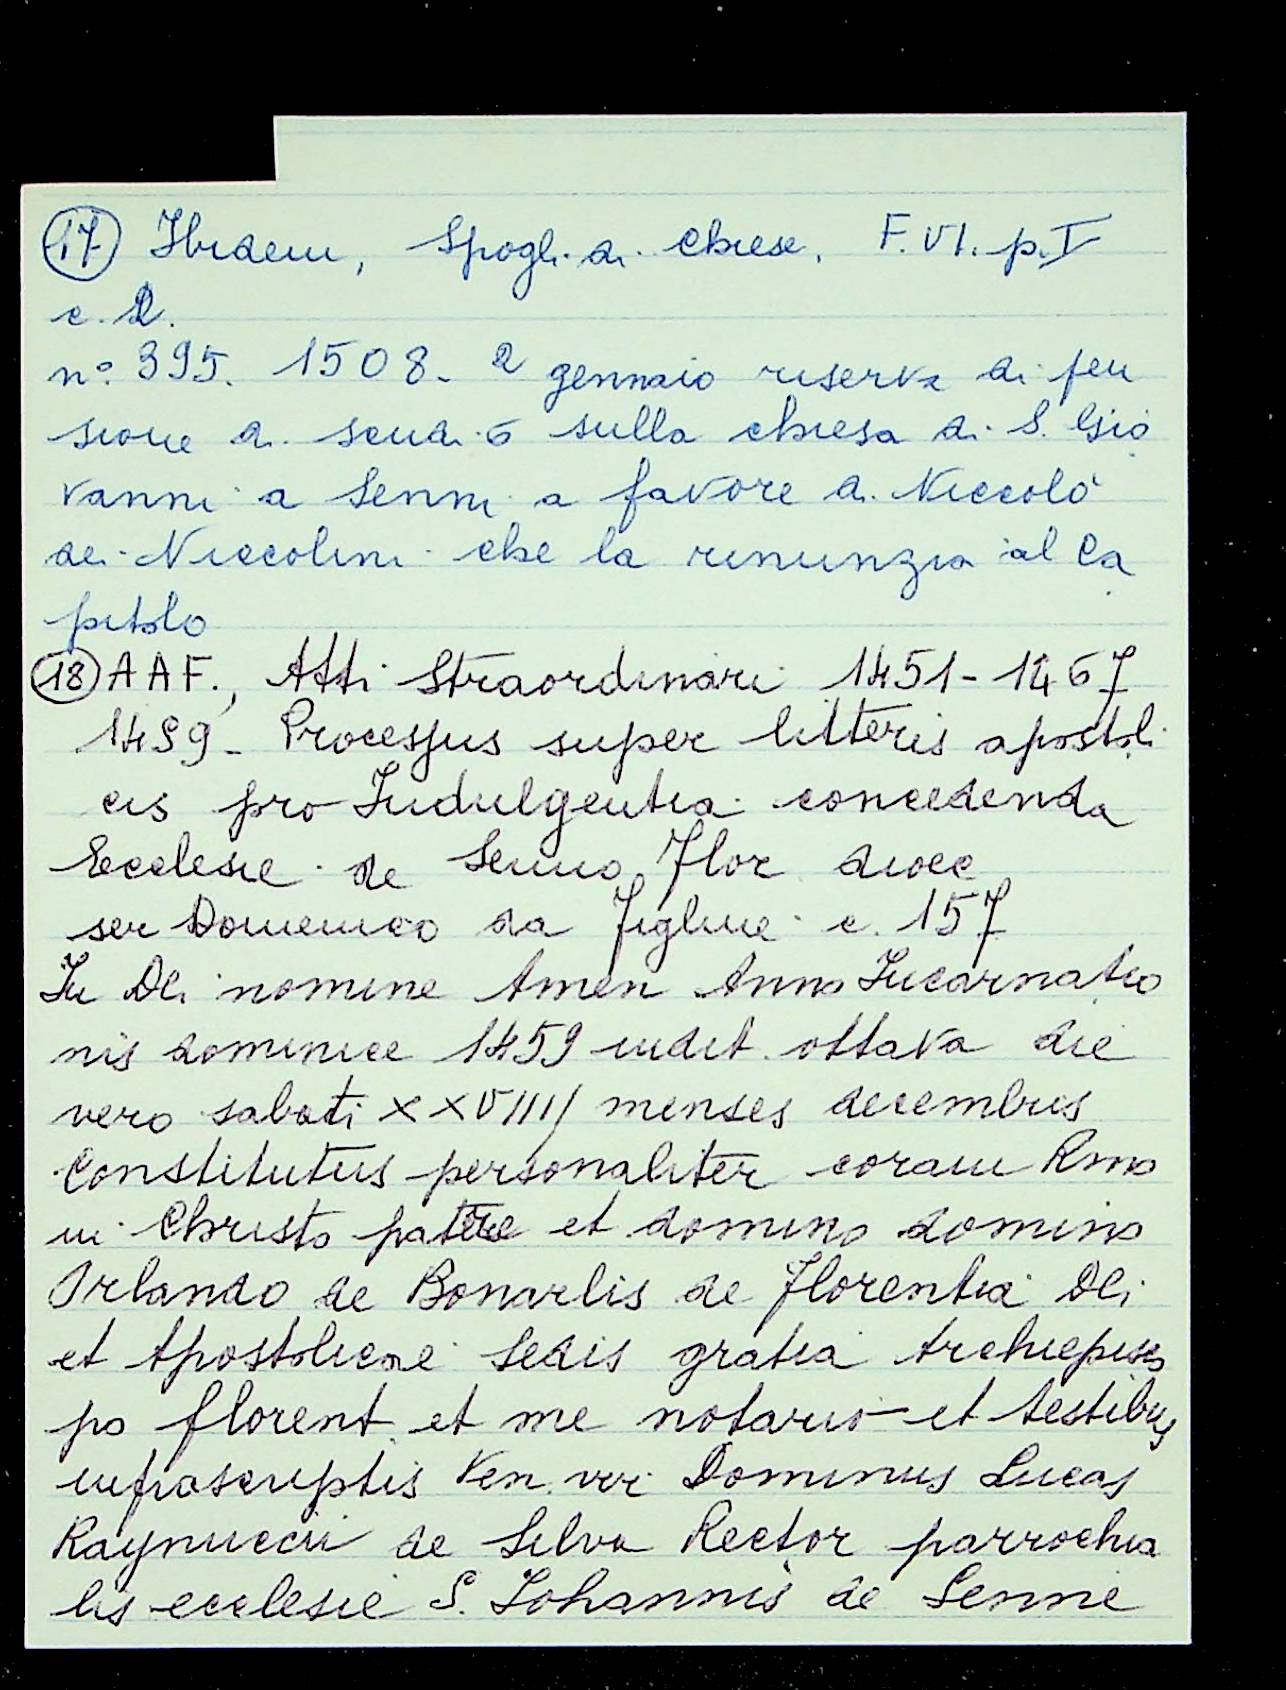 17 Ibidem, Spogli di chiese, F. VI. p. V
c. 2.
n°. 395. 1508. 2 gennaio riserva di pen
sione di scudi 6 sulla chiesa di S. Gio
vanni a Senni a favore di Niccolò
dei Niccolini che la rinunzia al Ca
pitolo
18 AAF., Atti Straordinari 1451-1467
1459- Processus super litteris apostoli
cis pro Indulgentia concedenda
Ecclesie de Senno, Flor dioec
ser Domenico da Figline c. 157
In Dei nomine Amen Anno Incarnatio
nis dominice 1459 indit. ottava die
vero sabati XXVIIII menses decembris
Constitutus personaliter coram Rmo
in Christo patre et domino domino
Orlando de Bonarlis de Florentia Dei
et Apostolicae Sedis gratia Archiepisco
po florent. et me notario et testibus
infrascriptis Ven. vir Dominus Lucas
Raynuccii de Silva Rector parrochia
lis ecclesie S. Johannis de Senni